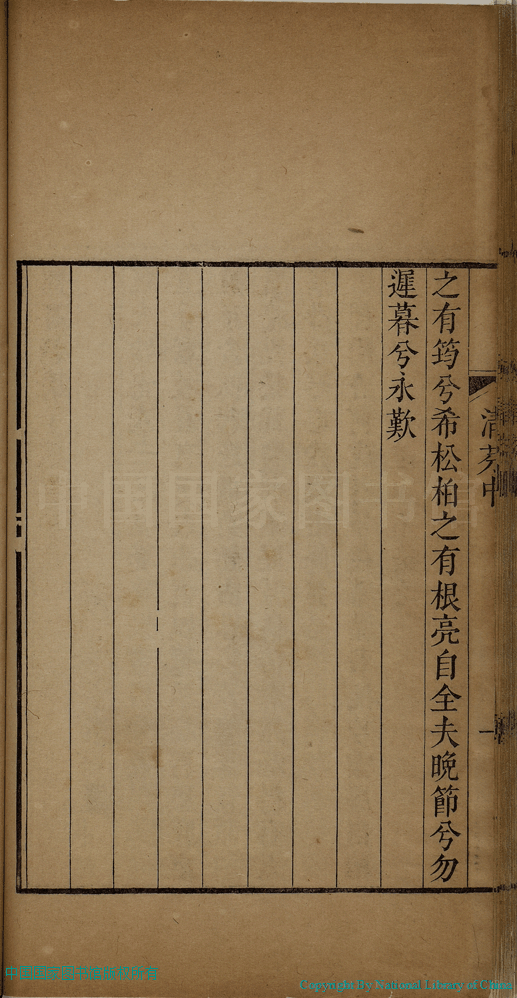 之有筠兮希松柏之有根亮自全夫晚節兮勿
遲暮兮永歎
清芬中
一
中国国家图书馆
Copyright By National Library of China